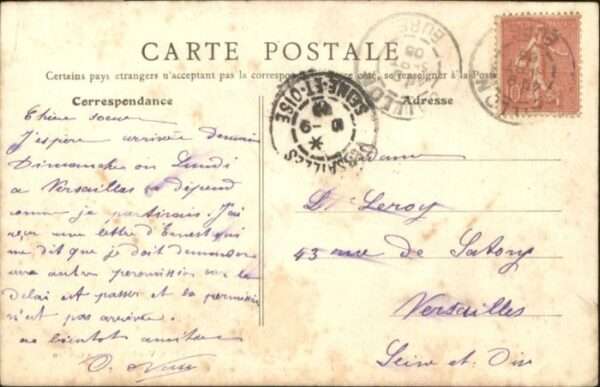 CARTE POSTALE
Certains pays etrangers n'acceptant pas la correspondance de ce côté, se renseigner à la Poste
Correspondance
Chère soeur
J'espère arrivée demain
Dimanche ou Lundi
a Versailles sa dépend
comme je partirais. J'ai
reçu une lettre d'Ernest qui
me dit que je doit demander
une autre permission car le
delai est passer et la permission
n'est pas arrivée.
bientot
Adresse
Madame
D. Leroy
43 rue de Satory
Versailles
Seine et Oise
VERSAILLES
SEINE-ET-OISE
EURE